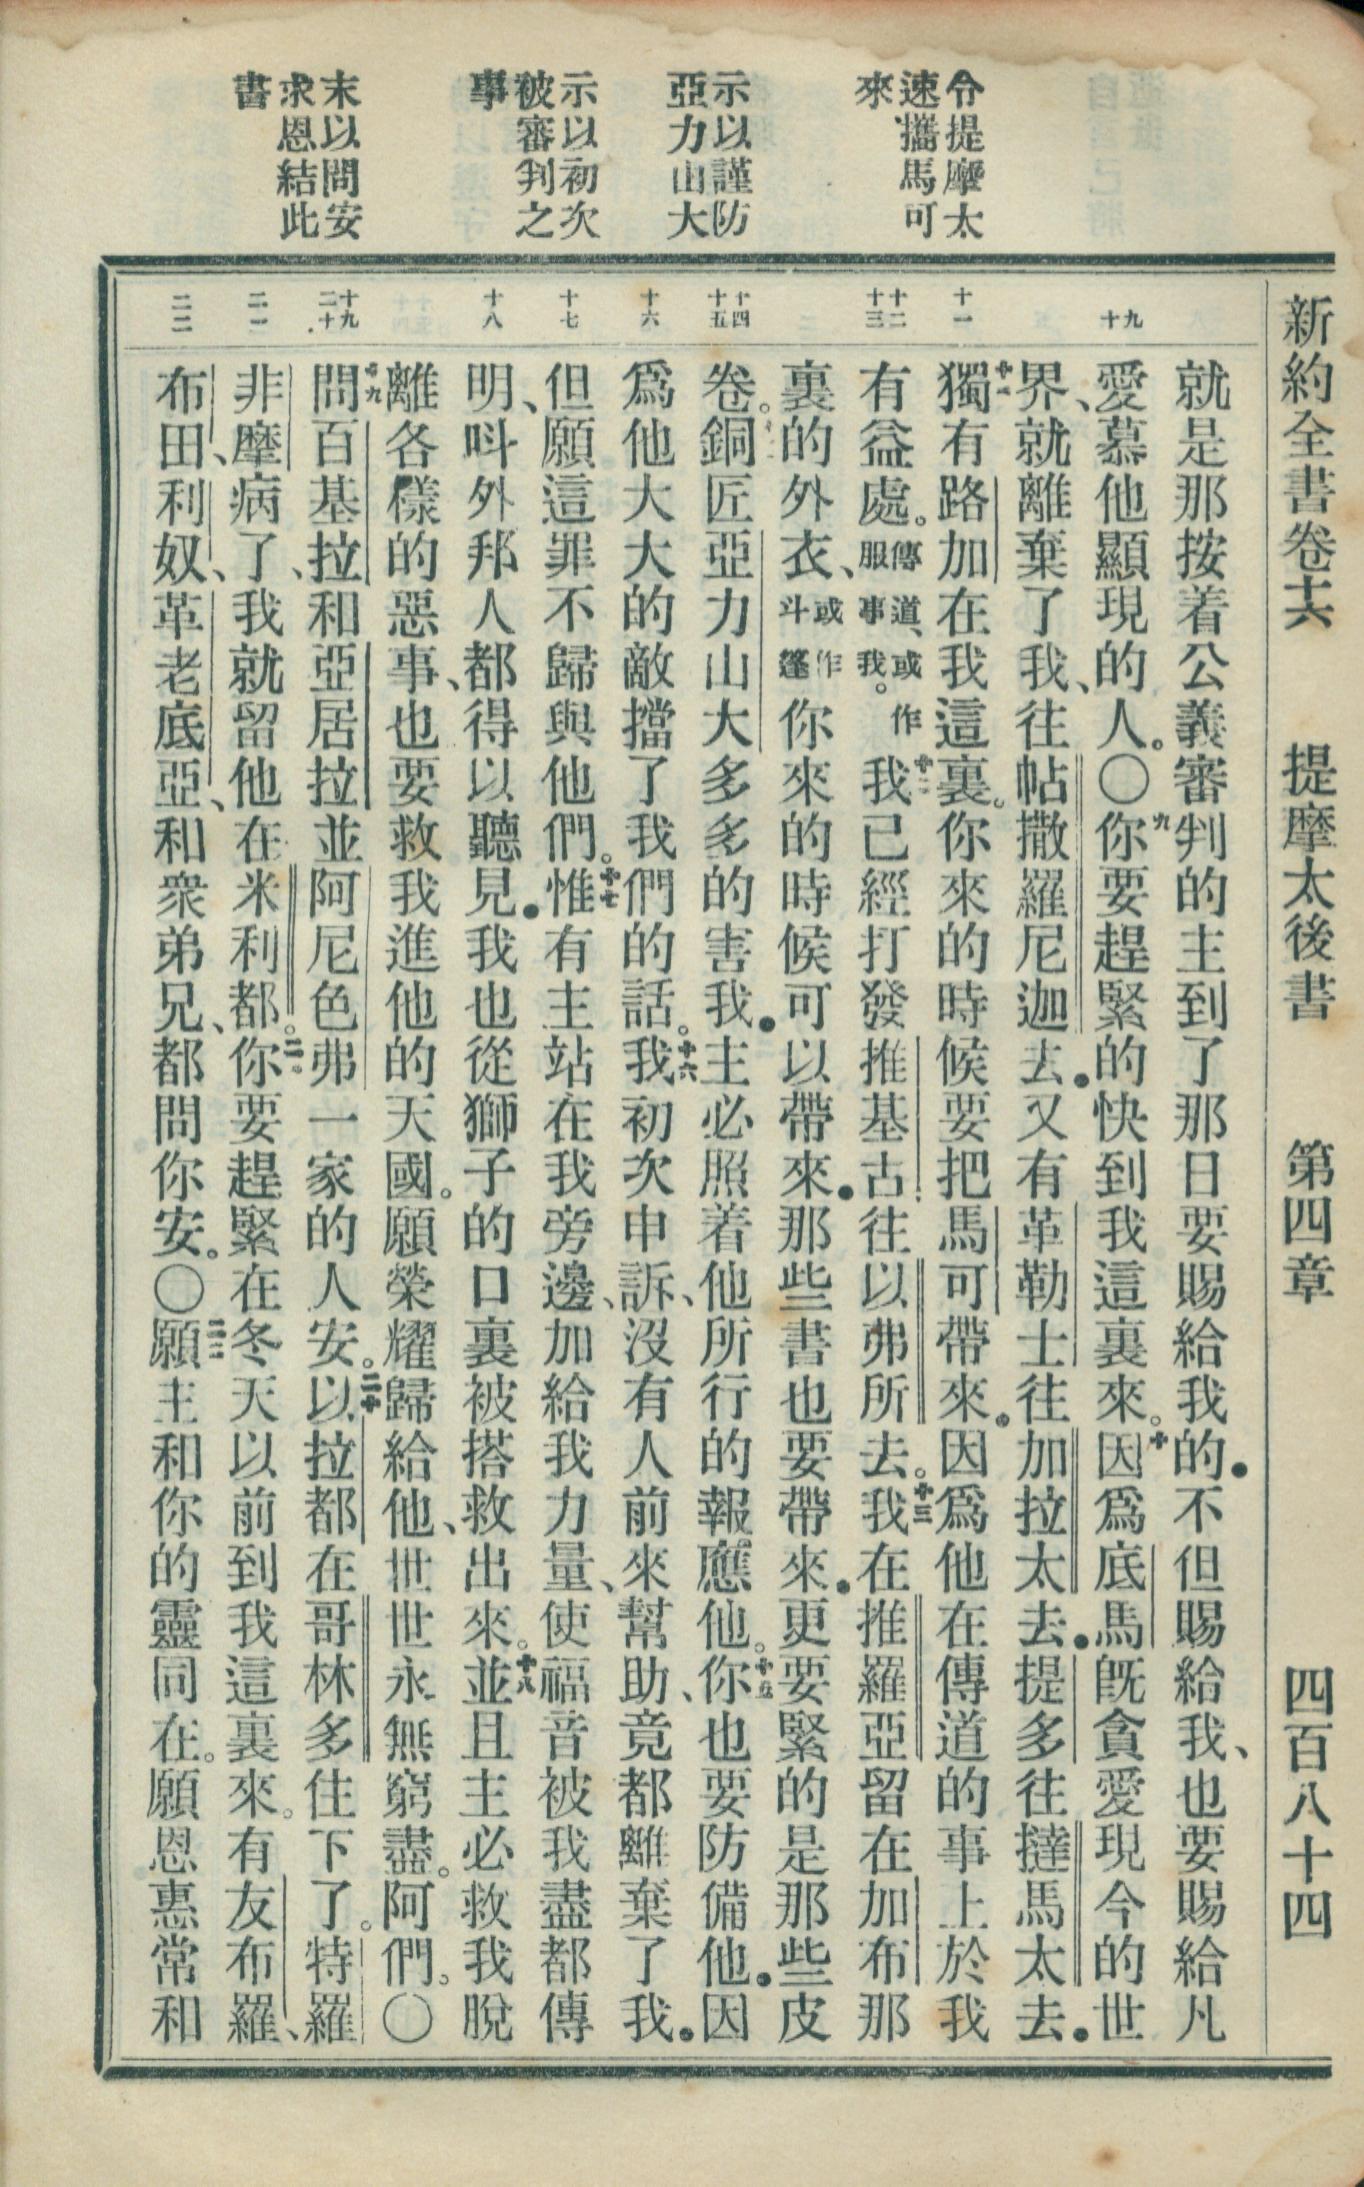 新約全書卷十六 提摩太後書 第四章 四百八十四
令提摩太
速攜馬可
來
示以謹防
亞力山大
示以初次
被審判之
事
末以問安
求恩結此
書
九
十
十一
十二
十三
十四
十五
十六
十七
十八
十九
二十
二一
二二
就是那按着公義審判的主到了那日要賜給我的．不但賜給我、也要賜給凡
愛慕他顯現的人。〇九你要趕緊的快到我這裏來。十因爲底馬旣貪愛現今的世
界、就離棄了我、往帖撒羅尼迦去．又有革勒士往加拉太去．提多往撻馬太去．
十一獨有路加在我這裏。你來的時候要把馬可帶來．因爲他在傳道的事上於我
有益處。傳道、或作服事我。十二我已經打發推基古往以弗所去。十三我在推羅亞留在加布那
裏的外衣、或作斗篷你來的時候可以帶來．那些書也要帶來．更要緊的是那些皮
卷。十四銅匠亞力山大多多的害我．主必照着他所行的報應他。十五你也要防備他．因
爲他大大的敵擋了我們的話。十六我初次申訴、沒有人前來幫助、竟都離棄了我．
但願這罪不歸與他們。十七惟有主站在我旁邊、加給我力量、使福音被我盡都傳
明、呌外邦人都得以聽見．我也從獅子的口裏被搭救出來。十八並且主必救我脫
離各樣的惡事、也要救我進他的天國。願榮耀歸給他、世世永無窮盡。阿們。〇
十九問百基拉、和亞居拉並阿尼色弗一家的人安。二十以拉都在哥林多住下了。特羅
非摩病了、我就留他在米利都。二一你要趕緊在冬天以前到我這裏來。有友布羅、
布田、利奴、革老底亞、和衆弟兄、都問你安。〇二二願主和你的靈同在。願恩惠常和